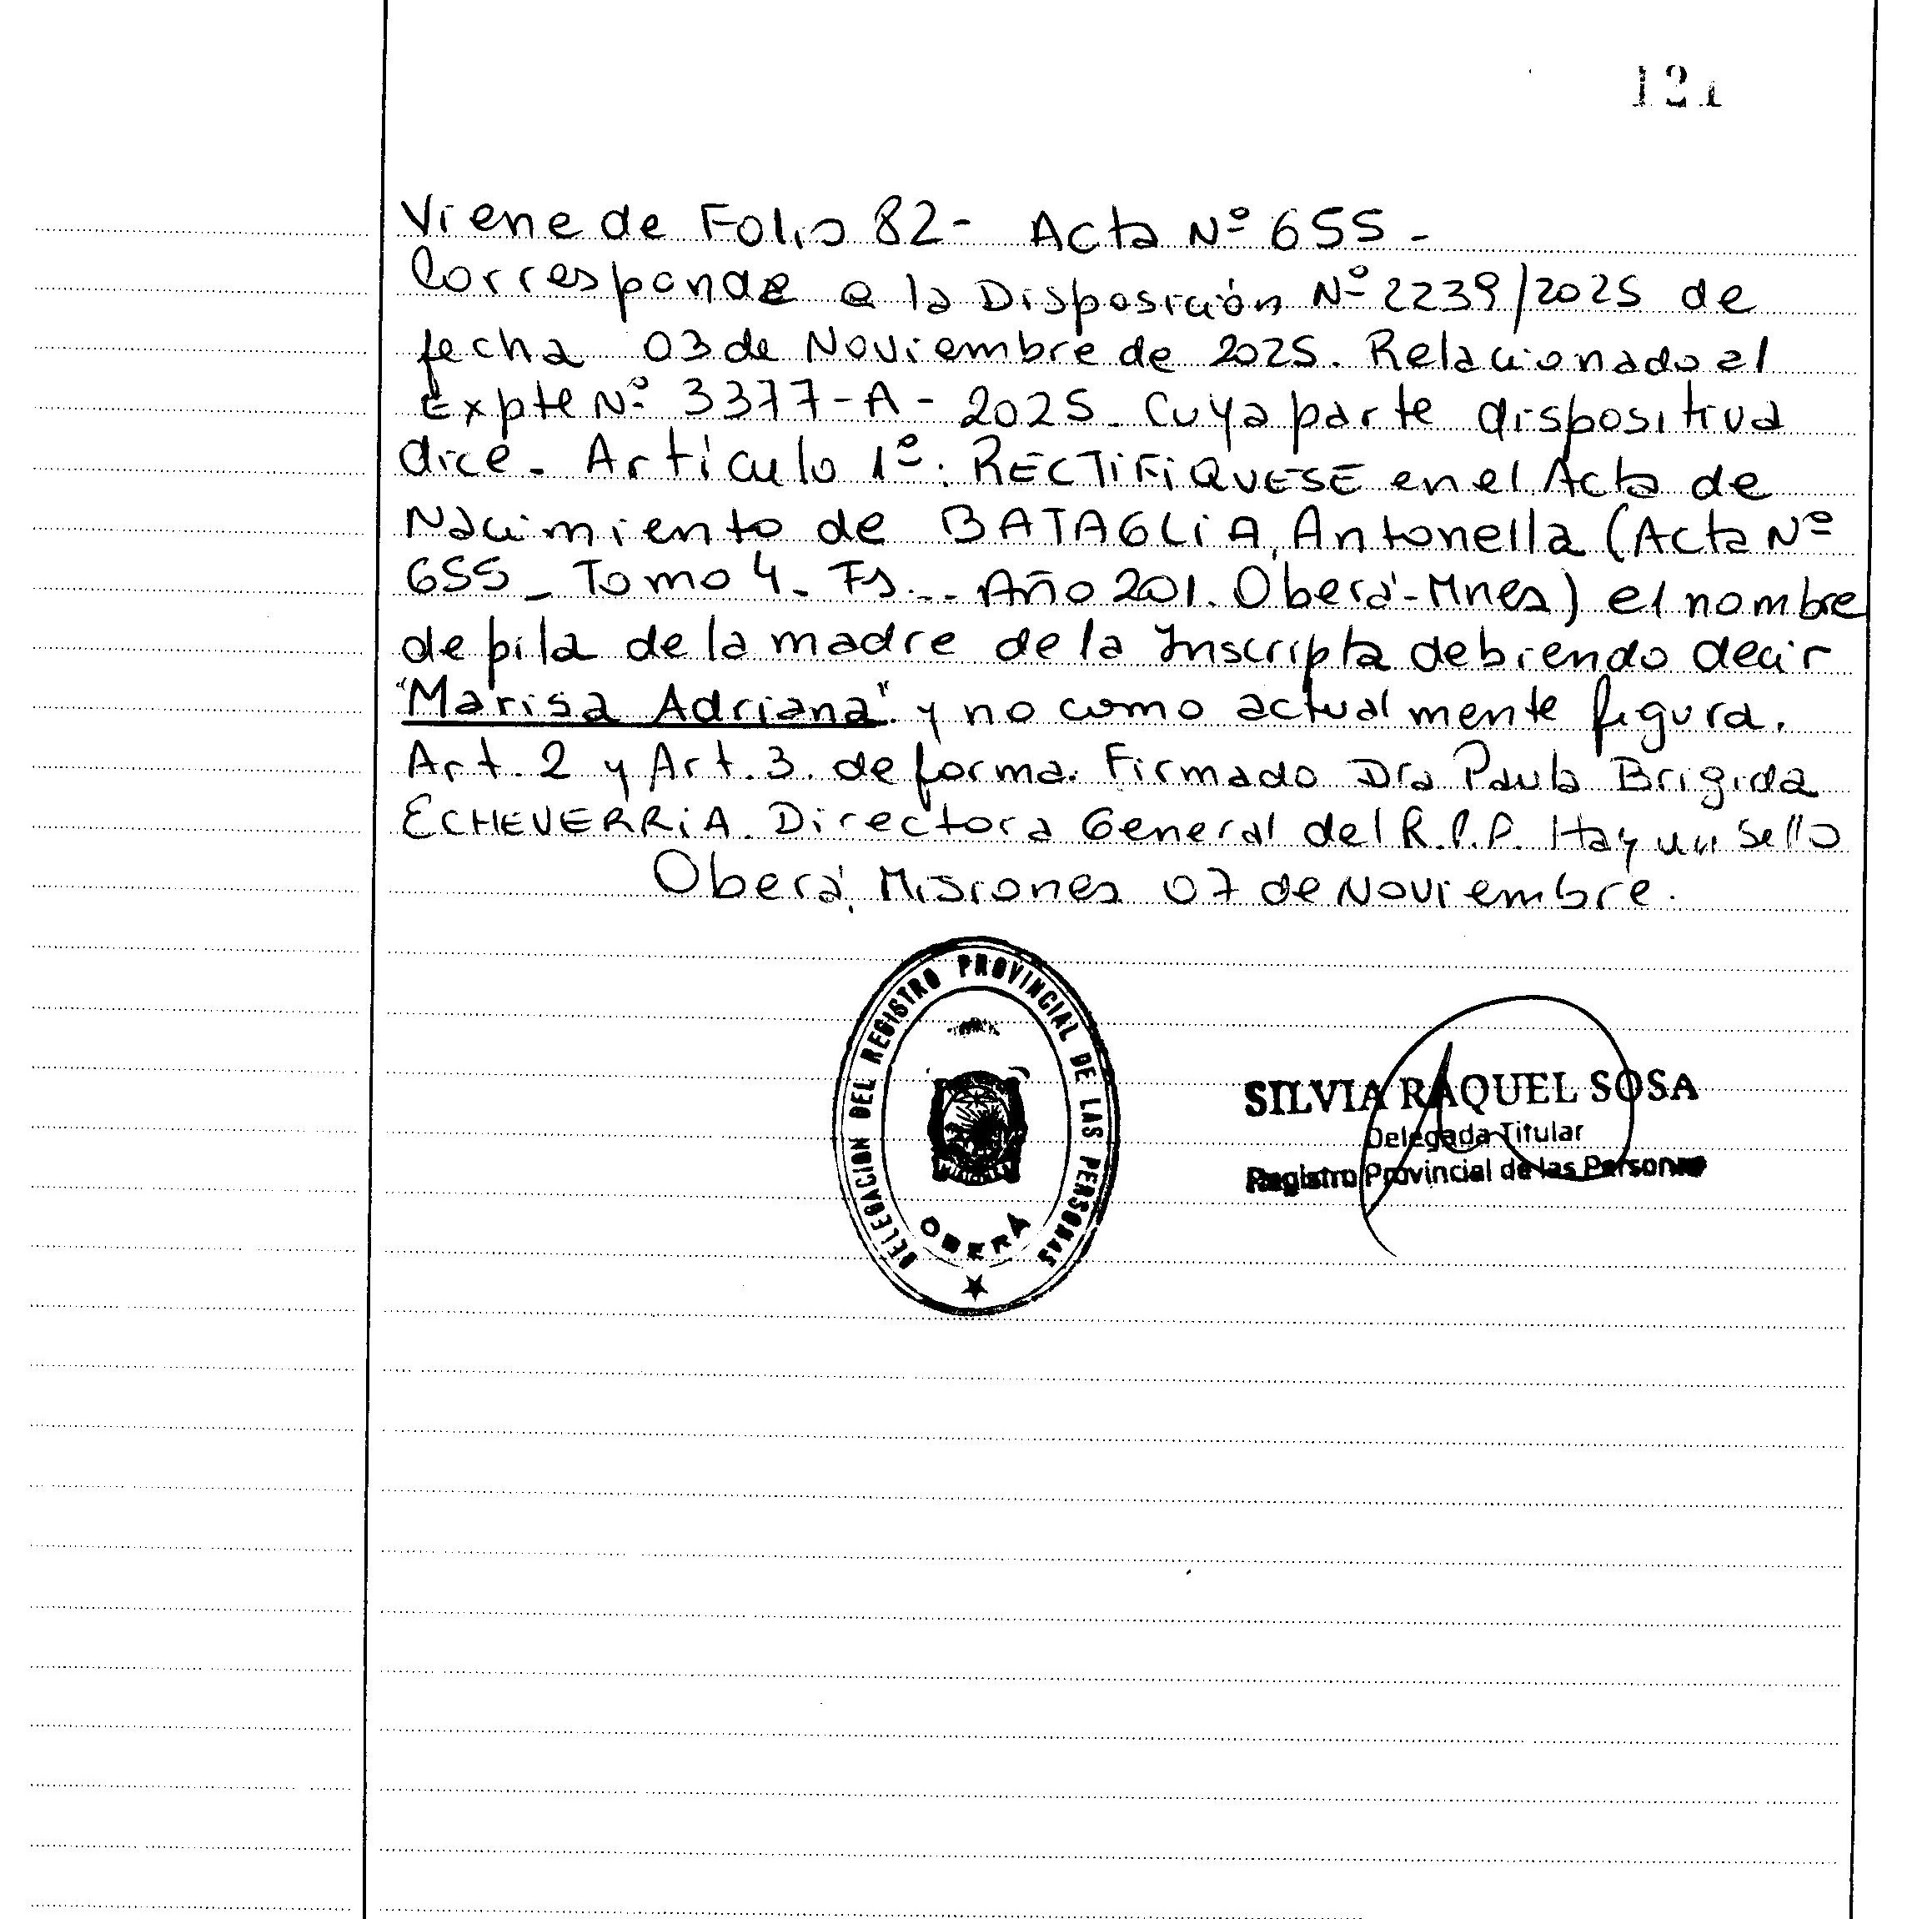 121
Viene de Folio 82- Acta Nº 655-
Corresponde a la Disposición Nº 2239/2025 de
fecha 03 de Noviembre de 2025. Relacionado al
Expte Nº 3377-A-2025. Cuya parte dispositiva
dice. Artículo 1º: RECTIFIQUESE en el Acta de
Nacimiento de BATAGLIA, Antonella (Acta Nº
655_ Tomo 4_ Fs... Año 201. Oberá-Mnes) el nombre
de pila de la madre de la Inscripta debiendo decir
"Marisa Adriana" y no como actualmente figura.
Art. 2 y Art. 3. de forma. Firmado Dra Paula Brigida
ECHEVERRIA. Directora General del R.P.P. Hay un sello
Oberá, Misiones 07 de Noviembre.
DELEGACION DEL REGISTRO PROVINCIAL DE LAS PERSONAS
OBERÁ
SILVIA RAQUEL SOSA
Delegada Titular
Registro Provincial de las Personas